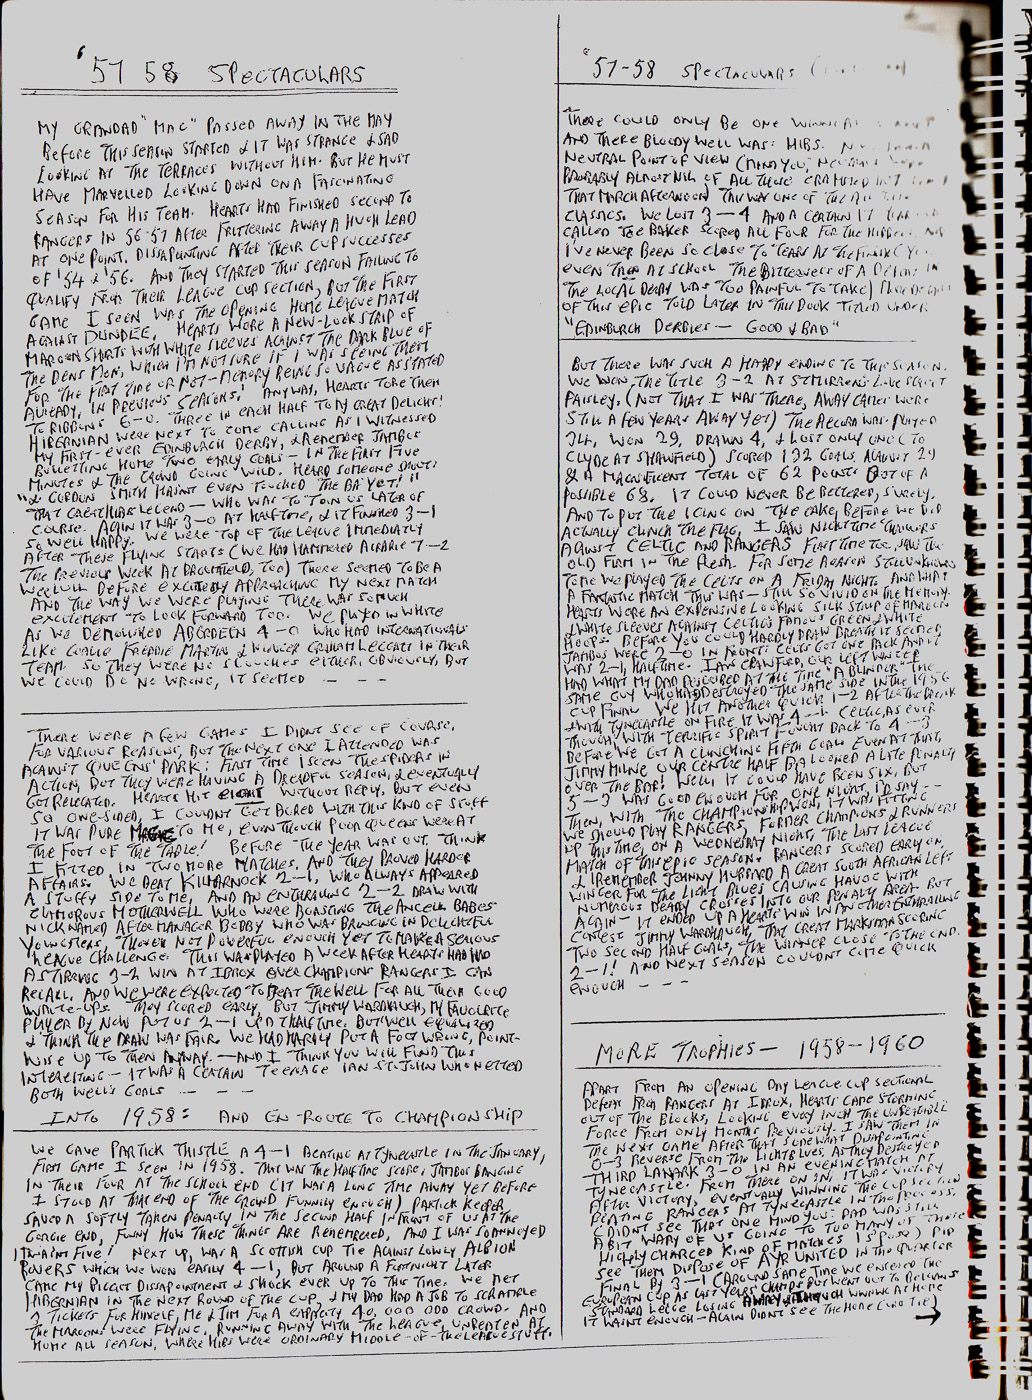 '57 58 SPECTACULARS
MY GRANDAD "MAC" PASSED AWAY IN THE MAY
BEFORE THIS SEASON STARTED & IT WAS STRANGE & SAD
LOOKING AT THE TERRACES WITHOUT HIM. BUT HE MUST
HAVE MARVELLED LOOKING DOWN ON A FASCINATING
SEASON FOR HIS TEAM. HEARTS HAD FINISHED SECOND TO
RANGERS IN 56-57 AFTER FRITTERING AWAY A HUGH LEAD
AT ONE POINT. DISSAPOINTING AFTER THEIR CUP SUCCESSES
OF '54 & '56. AND THEY STARTED THIS SEASON FAILING TO
QUALIFY FROM THEIR LEAGUE CUP SECTION, BUT THE FIRST
GAME I SEEN WAS THE OPENING HOME LEAGUE MATCH
AGAINST DUNDEE, HEARTS WORE A NEW-LOOK STRIP OF
MAROON SHIRTS WITH WHITE SLEEVES AGAINST THE DARK BLUE OF
THE DENS MEN, WHICH I'M NOT SURE IF I WAS SEEING THEM
FOR THE FIRST TIME OR NOT - MEMORY BEING SO VAGUE AS STATED
ALREADY, IN PREVIOUS SEASONS! ANYWAY, HEARTS TORE THEM
TO RIBBONS 6-0. THREE IN EACH HALF TO MY GREAT DELIGHT!
HIBERNIAN WERE NEXT TO COME CALLING AS I WITNESSED
MY FIRST-EVER EDINBURGH DERBY, & REMEMBER JAMBOS
BULLETING HOME TWO EARLY GOALS - IN THE FIRST FIVE
MINUTES & THE CROWD GOING WILD. HEARD SOMEONE SHOUT:
"& GORDON SMITH HASNT EVEN TOUCHED THE BA' YET!"
THAT GREAT HIBS LEGEND - WHO WAS TO JOIN US LATER OF
COURSE. AGAIN IT WAS 3-0 AT HALF TIME, & IT FINISHED 3-1
SO WELL HAPPY. WE WERE TOP OF THE LEAGUE IMMEDIATLY
AFTER THESE FLYING STARTS (WE HAD HAMMERED AIRDRIE 7-2
THE PREVIOUS WEEK AT BROOMFIELD, TOO) THERE SEEMED TO BE A
WEE LULL BEFORE EXCITEDLY APPROACHING MY NEXT MATCH
AND THE WAY WE WERE PLAYING THERE WAS SO MUCH
EXCITEMENT TO LOOK FORWARD TOO. WE PLAYED IN WHITE
AS WE DEMOLISHED ABERDEEN 4-0 WHO HAD INTERNATIONALS
LIKE GOALIE FREDDIE MARTIN & WINGER GRAHAM LEGGATT IN THEIR
TEAM. SO THEY WERE NO SLOUCHES EITHER, OBVIOUSLY, BUT
WE COULD DO NO WRONG, IT SEEMED - - -
THERE WERE A FEW GAMES I DIDNT SEE OF COURSE,
FOR VARIOUS REASONS, BUT THE NEXT ONE I ATTENDED WAS
AGAINST QUEENS' PARK: FIRST TIME I SEEN THE SPIDERS IN
ACTION, BUT THEY WERE HAVING A DREADFUL SEASON, & EVENTUALLY
GOT RELEGATED. HEARTS HIT EIGHT WITHOUT REPLY, BUT EVEN
SO ONE-SIDED, I COULDNT GET BORED WITH THIS KIND OF STUFF
IT WAS PURE MAGIC TO ME, EVEN THOUGH POOR QUEENS WERE AT
THE FOOT OF THE TABLE! BEFORE THE YEAR WAS OUT THINK
I FITTED IN TWO MORE MATCHES, AND THEY PROVED HARDER
AFFAIRS. WE BEAT KILMARNOCK 2-1, WHO ALWAYS APPEARED
A STUFFY SIDE TO ME, AND AN ENTHRALLING 2-2 DRAW WITH
GLAMOROUS MOTHERWELL WHO WERE BOASTING THE ANCELL BABES
NICKNAMED AFTER MANAGER BOBBY WHO WAS BRINGING IN DELIGHTFUL
YOUNGSTERS, THOUGH NOT POWERFUL ENOUGH YET TO MAKE A SERIOUS
LEAGUE CHALLENGE. THIS WAS PLAYED A WEEK AFTER HEARTS HAD HAD
A STIRRING 3-2 WIN AT IBROX OVER CHAMPIONS RANGERS I CAN
RECALL. AND WE WERE EXPECTED TO BEAT THE WELL FOR ALL THEIR GOOD
WRITE-UPS. THEY SCORED EARLY, BUT JIMMY WARDHAUGH, MY FAVOURITE
PLAYER BY NOW PUT US 2-1 UP AT HALF TIME. BUT WELL EQUALIZED
& THINK THE DRAW WAS FAIR. WE HAD HARDLY PUT A FOOT WRONG, POINT-
WISE UP TO THEN ANYWAY. - AND I THINK YOU WILL FIND THIS
INTERESTING - IT WAS A CERTAIN TEENAGE IAN ST. JOHN WHO NETTED
BOTH WELL'S GOALS - - -
INTO 1958: AND EN-ROUTE TO CHAMPIONSHIP
WE GAVE PARTICK THISTLE A 4-1 BEATING AT TYNECASTLE IN THE JANUARY,
FIRST GAME I SEEN IN 1958. THAT WAS THE HALF TIME SCORE, JAMBOS BANGING
IN THEIR FOUR AT THE SCHOOL END (IT WAS A LONG TIME AWAY YET BEFORE
I STOOD AT THAT END OF THE GROUND FUNNILY ENOUGH) PARTICK KEEPER
SAVED A SOFTLY TAKEN PENALTY IN THE SECOND HALF IN FRONT OF US AT THE
GORGIE END, FUNNY HOW THESE THINGS ARE REMEMBERED, AND I WAS SO ANNOYED
IT WASNT FIVE! NEXT UP, WAS A SCOTTISH CUP TIE AGAINST LOWLY ALBION
ROVERS WHICH WE WON EASILY 4-1, BUT AROUND A FORTNIGHT LATER
CAME MY BIGGEST DISSAPOINTMENT & SHOCK EVER UP TO THIS TIME. WE MET
HIBERNIAN IN THE NEXT ROUND OF THE CUP, & MY DAD HAD A JOB TO SCRAMBLE
3 TICKETS FOR HIMSELF, ME & JIM FOR A CAPACITY 40,000 ODD CROWD. AND
THE MAROONS WERE FLYING, RUNNING AWAY WITH THE LEAGUE, UNBEATEN AT
HOME ALL SEASON, WHERE HIBS WERE ORDINARY MIDDLE-OF-THE LEAGUE STUFF.
'57-58 SPECTACULARS
THERE COULD ONLY BE ONE WINNER
AND THERE BLOODY WELL WAS: HIBS.
NEUTRAL POINT OF VIEW (MIND YOU, NEUTRALS WERE
PROBABLY ALMOST NIL OF ALL THOSE CRAMMED IN
THAT MARCH AFTERNOON) THIS WAS ONE OF THE ALL TIME
CLASSICS. WE LOST 3-4 AND A CERTAIN 17 YEAR OLD
CALLED JOE BAKER SCORED ALL FOUR FOR THE HIBBEES.
I'VE NEVER BEEN SO CLOSE TO TEARS AT THE FINISH
EVEN THEN AT SCHOOL THE BITTERNESS OF A DEFEAT IN
THE LOCAL DERBY WAS TOO PAINFUL TO TAKE)
OF THIS EPIC TOLD LATER IN THIS BOOK TITLED UNDER
"EDINBURGH DERBIES - GOOD & BAD"
BUT THERE WAS SUCH A HAPPY ENDING TO THIS SEASON.
WE WON THE TITLE 3-2 AT ST MIRREN'S LOVE STREET
PAISLEY, (NOT THAT I WAS THERE, AWAY GAMES WERE
STILL A FEW YEARS AWAY YET) THE RECORD WAS: PLAYED
34, WON 29, DRAWN 4, & LOST ONLY ONE (TO
CLYDE AT SHAWFIELD) SCORED 132 GOALS AGAINST 29
& A MAGNIFICENT TOTAL OF 62 POINTS OUT OF A
POSSIBLE 68. IT COULD NEVER BE BETTERED, SURELY.
AND TO PUT THE ICING ON THE CAKE, BEFORE WE DID
ACTUALLY CLINCH THE FLAG, I SAW NIGHT TIME THRILLERS
AGAINST CELTIC AND RANGERS FIRST TIME TOO, SAW THE
OLD FIRM IN THE FLESH. FOR SOME REASON STILL UNKNOWN
TO ME WE PLAYED THE CELTS ON A FRIDAY NIGHT AND WHAT
A FANTASTIC MATCH THIS WAS - STILL SO VIVID ON THE MEMORY.
HEARTS WORE AN EXPENSIVE LOOKING SILK STRIP OF MAROON
& WHITE SLEEVES AGAINST CELTICS FAMOUS GREEN & WHITE
HOOPS. BEFORE YOU COULD HARDLY DRAW BREATH IT SEEMED
JAMBOS WERE 2-0 IN FRONT: CELTS GOT ONE BACK AND IT
WAS 2-1, HALF TIME. IAN CRAWFORD, OUR LEFT WINGER
HAD WHAT MY DAD DESCRIBED AT THE TIME "A BLINDER" THE
SAME GUY WHO HAD DESTROYED THE SAME SIDE IN THE 1956
CUP FINAL. WE HIT ANOTHER QUICK 1-2 AFTER THE BREAK
& WITH TYNECASTLE ON FIRE IT WAS 4-1. CELTIC, AS EVER
THOUGH, WITH TERRIFIC SPIRIT FOUGHT BACK TO 4-3
BEFORE WE GOT A CLINCHING FIFTH GOAL. EVEN AT THAT,
JIMMY MILNE OUR CENTRE HALF BALOONED A LATE PENALTY
OVER THE BAR! WELL, IT COULD HAVE BEEN SIX, BUT
5-3 WAS GOOD ENOUGH FOR ONE NIGHT, I'D SAY - -
THEN, WITH THE CHAMPIONSHIP WON, IT WAS FITTING
WE SHOULD PLAY RANGERS, FORMER CHAMPIONS & RUNNERS
UP THIS TIME, ON A WEDNESDAY NIGHT, THE LAST LEAGUE
MATCH OF THIS EPIC SEASON. RANGERS SCORED EARLY ON,
& I REMEMBER JOHNNY HUBBARD A GREAT SOUTH AFRICAN LEFT
WINGER FOR THE LIGHT BLUES CAUSING HAVOC WITH
NUMEROUS DEADLY CROSSES INTO OUR PENALTY AREA. BUT
AGAIN - IT ENDED UP A HEARTS WIN IN ANOTHER ENTHRALLING
CONTEST JIMMY WARDHAUGH, THAT GREAT MARKSMAN SCORING
TWO SECOND HALF GOALS, THE WINNER CLOSE TO THE END.
2-1! AND NEXT SEASON COULDNT COME QUICK
ENOUGH - - -
MORE TROPHIES - 1958-1960
APART FROM AN OPENING DAY LEAGUE CUP SECTIONAL
DEFEAT FROM RANGERS AT IBROX, HEARTS CAME STORMING
OUT OF THE BLOCKS, LOOKING EVERY INCH THE UNBEATABLE
FORCE FROM ONLY MONTHS PREVIOUSLY. I SAW THEM IN
THE NEXT GAME AFTER THAT SOMEWHAT DISAPOINTING
0-3 REVERSE FROM THE LIGHT BLUES, AS THEY DESTROYED
THIRD LANARK 3-0 IN AN EVENING MATCH AT
TYNECASTLE. FROM THERE ON IN, IT WAS VICTORY
AFTER VICTORY, EVENTUALLY WINNING THE CUP SECTION
BEATING RANGERS AT TYNECASTLE IN THE PROCESS.
(DIDNT SEE THAT ONE MIND YOU: DAD WAS STILL
A BIT WARY OF US GOING TO TOO MANY OF THOSE
HIGHLY CHARGED KIND OF MATCHES I SPOSE) DID
SEE THEM DISPOSE OF AYR UNITED IN THE QUARTER
FINAL BY 3-1 (AROUND SAME TIME WE ENTERED THE
EUROPEAN CUP AS LAST YEARS CHAMPS BUT WENT OUT TO BELGIANS
STANDARD LIEGE LOSING AWAY, ALTHOUGH WINNING AT HOME
IT WASNT ENOUGH - AGAIN DIDNT SEE THE HOME EURO TIE)